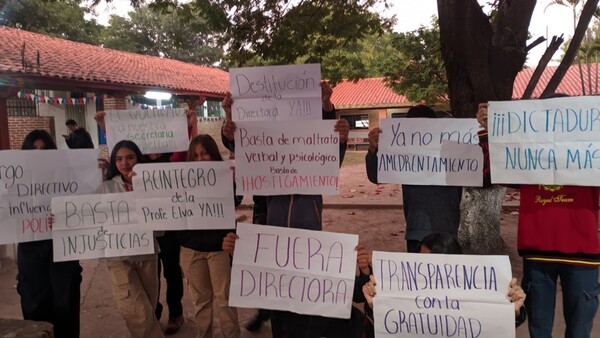 Destitución
de la
Directora YA!!!
Basta de maltrato
verbal y psicológico
Basta de
¡HOSTIGAMIENTO!
nuestra
secretaria
Ya no más
AMEDRENTAMIENTO
¡¡¡DICTADURA
NUNCA MÁS
DIRECTIVO
influen
BASTA
de
INJUSTICIAS
REINTEGRO
de la
Profe Elva YA!!!
FUERA
DIRECTORA
TRANSPARENCIA
con la
GRATUIDAD
Royal Team